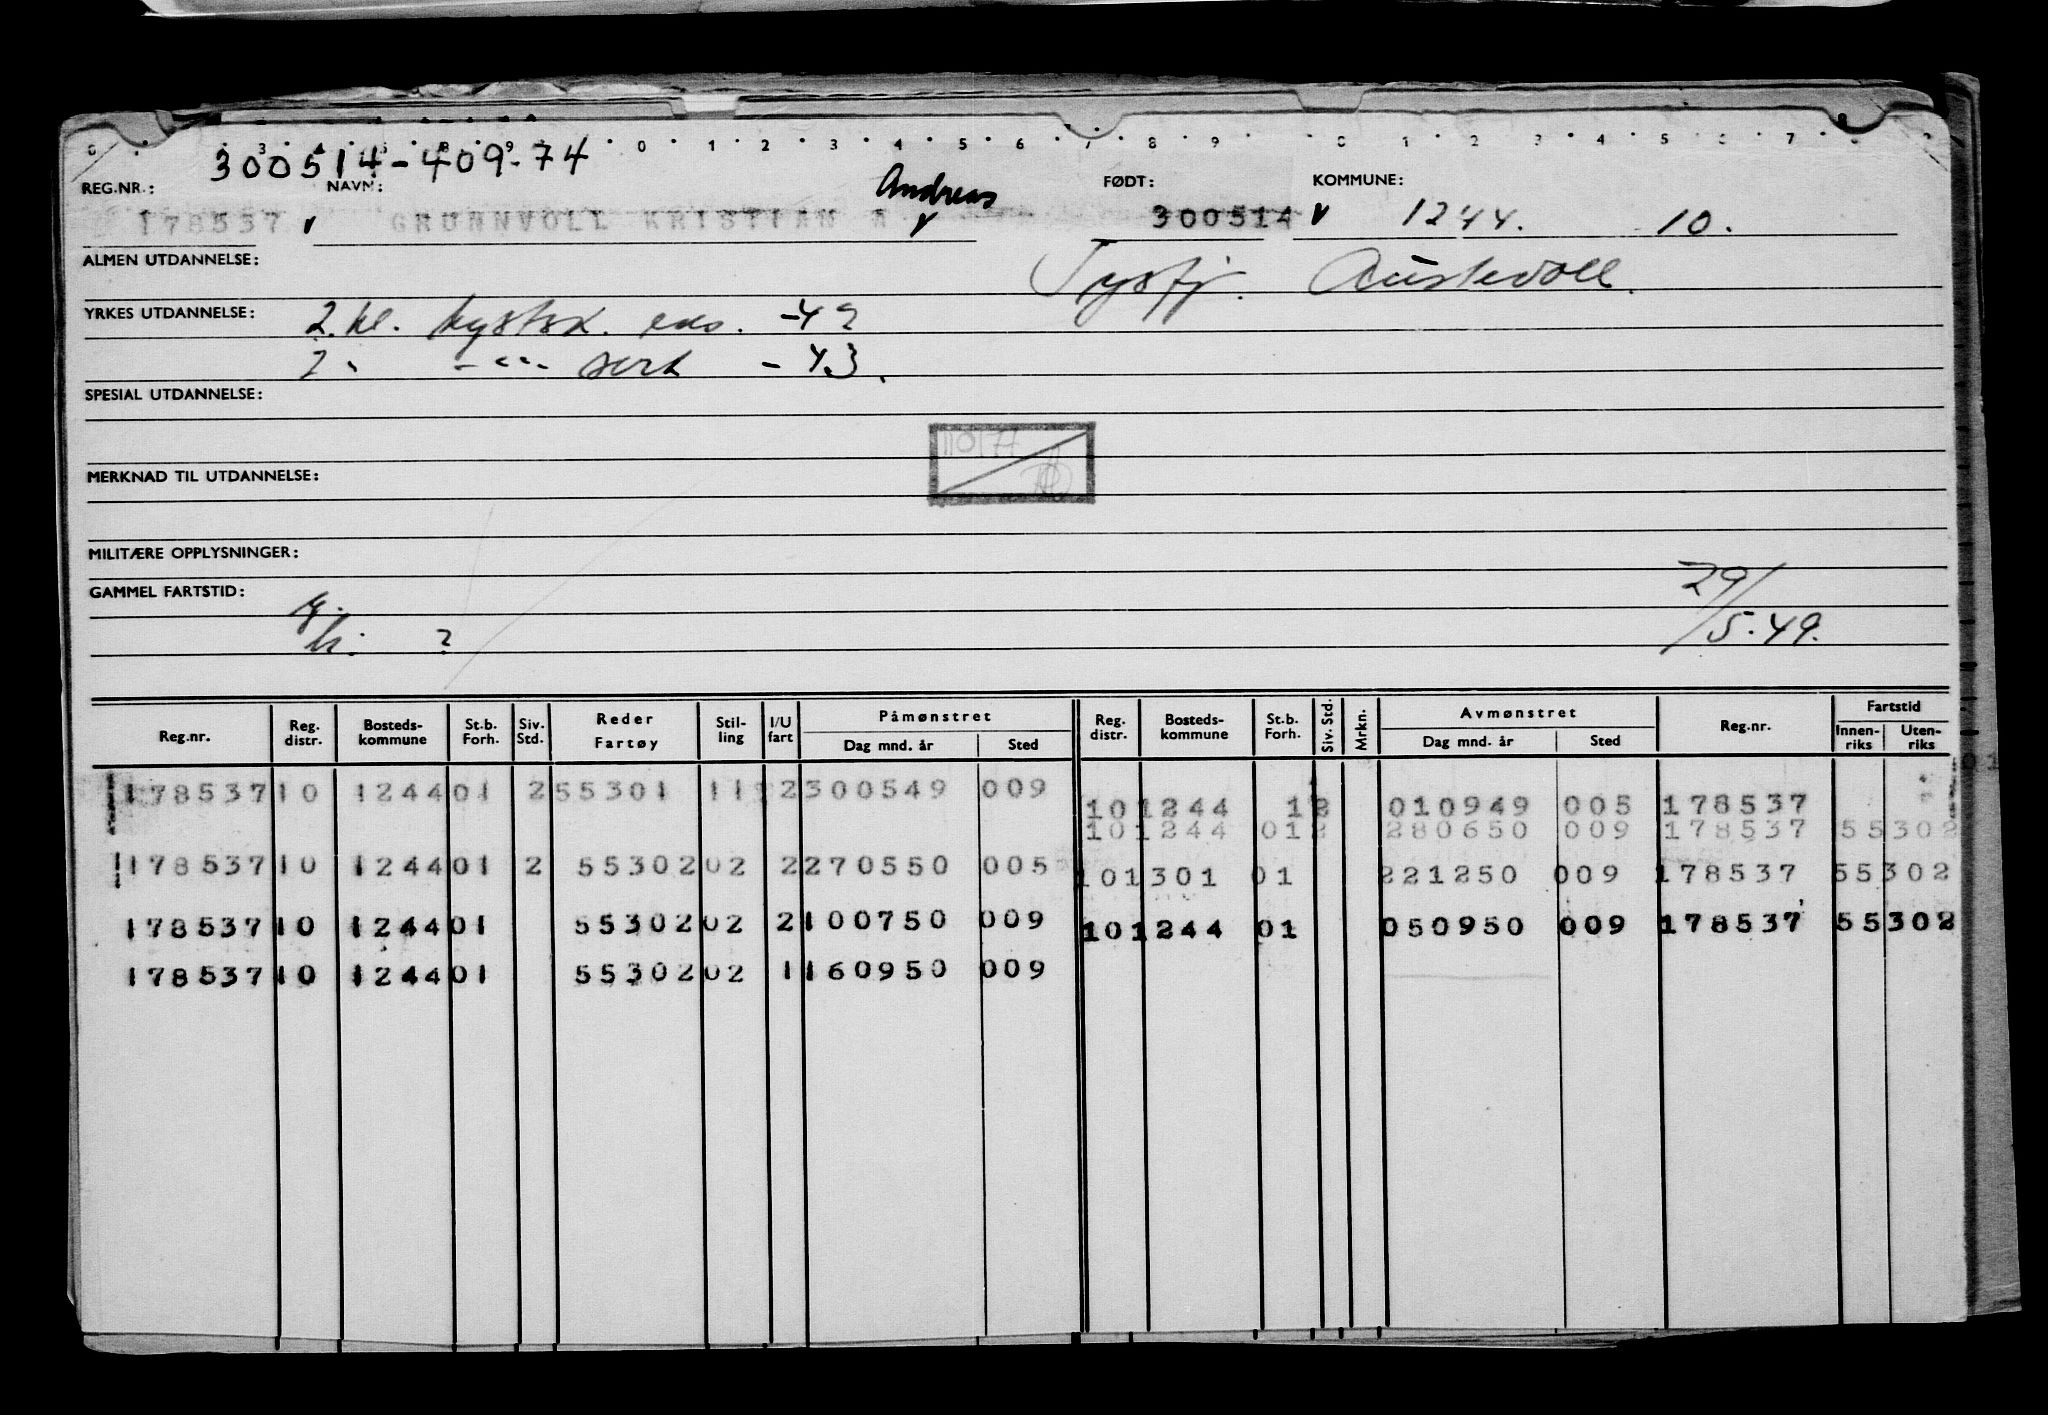 300514-409-74
REG.NR.: NAVN: Andreas FØDT: KOMMUNE:
178537 v GRUNNVOLL KRISTIAN A v 300514 v 1244. 10.
ALMEN UTDANNELSE: Tysfj. Austevoll.
YRKES UTDANNELSE: 2. kl. kystsk. eks. -42
2 " -"- sert - 43.
SPESIAL UTDANNELSE:
MERKNAD TIL UTDANNELSE:
MILITÆRE OPPLYSNINGER:
GAMMEL FARTSTID: 29/
h. ? 5.49.
Reg.nr. Reg. distr. Bosteds-kommune St.b. Forh. Siv. Std. Reder Fartøy Stil-ling I/U fart Påmønstret Dag mnd. år Sted Reg. distr. Bosteds-kommune St.b. Forh. Siv. Std. Mrkn. Avmønstret Dag mnd. år Sted Reg.nr. Fartstid Innen-riks Uten-riks
178537 10 1244 01 2 55301 11 2 300549 009
10 1244 1 2 010949 005 178537
10 1244 01 2 280650 009 178537 55302
178537 10 1244 01 2 55302 02 2 270550 005
10 1301 01 221250 009 178537 55302
178537 10 1244 01 55302 02 2 100750 009
10 1244 01 050950 009 178537 55302
178537 10 1244 01 55302 02 1 160950 009